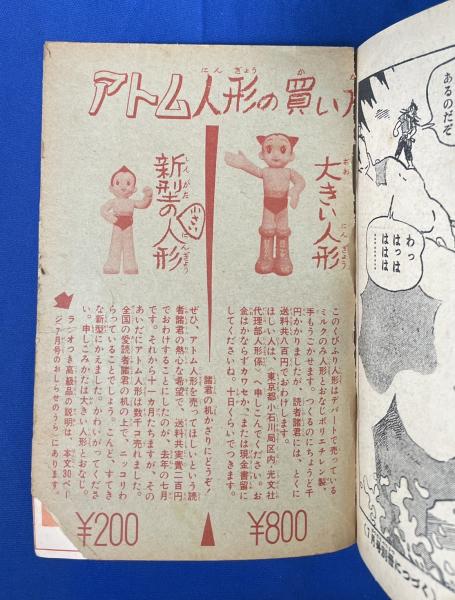 アトム人形の買い
にんぎょう
か
大きい人形
おお
にんぎょう
このくびふり人形はデパートで売っている
ミルクのみ人形とおなじポリエチレン製
手もうごかせます。つくるのにちょうど千
円かかりましたが、読者諸君には、とくに
送料共八百円でおわけします。
ほしい人は、東京都小石川局区内・光文社
代理部人形係、へ申しこんでください。お
金はかならずカワセか、または現金書留に
してくださいね。十日くらいでつきます。
¥800
新型の小さい人形
しんがた
にんぎょう
諸君の机かざりにどうぞ。
ぜひ、アトム人形を売ってほしいという読
者諸君の熱心な希望で、送料共実費二百円
でおわけすることにしたのが、去年の七月
です。それから十一カ月たちますが、その
あいだにアトム人形は数千コ売れました。
全国の愛読者諸君の机の上で、ニッコリわ
らっていることでしょう。こんど、すてき
な新型にかえました。かわいがってくださ
い。申しこみかたは大きい人形とおなじ。
ラジオつき高級品の説明は、本文30ペー
ジ「7月号のおしらせのうち」にあります。
¥200
あるのだぞ
わっ
はっは
ははは
………